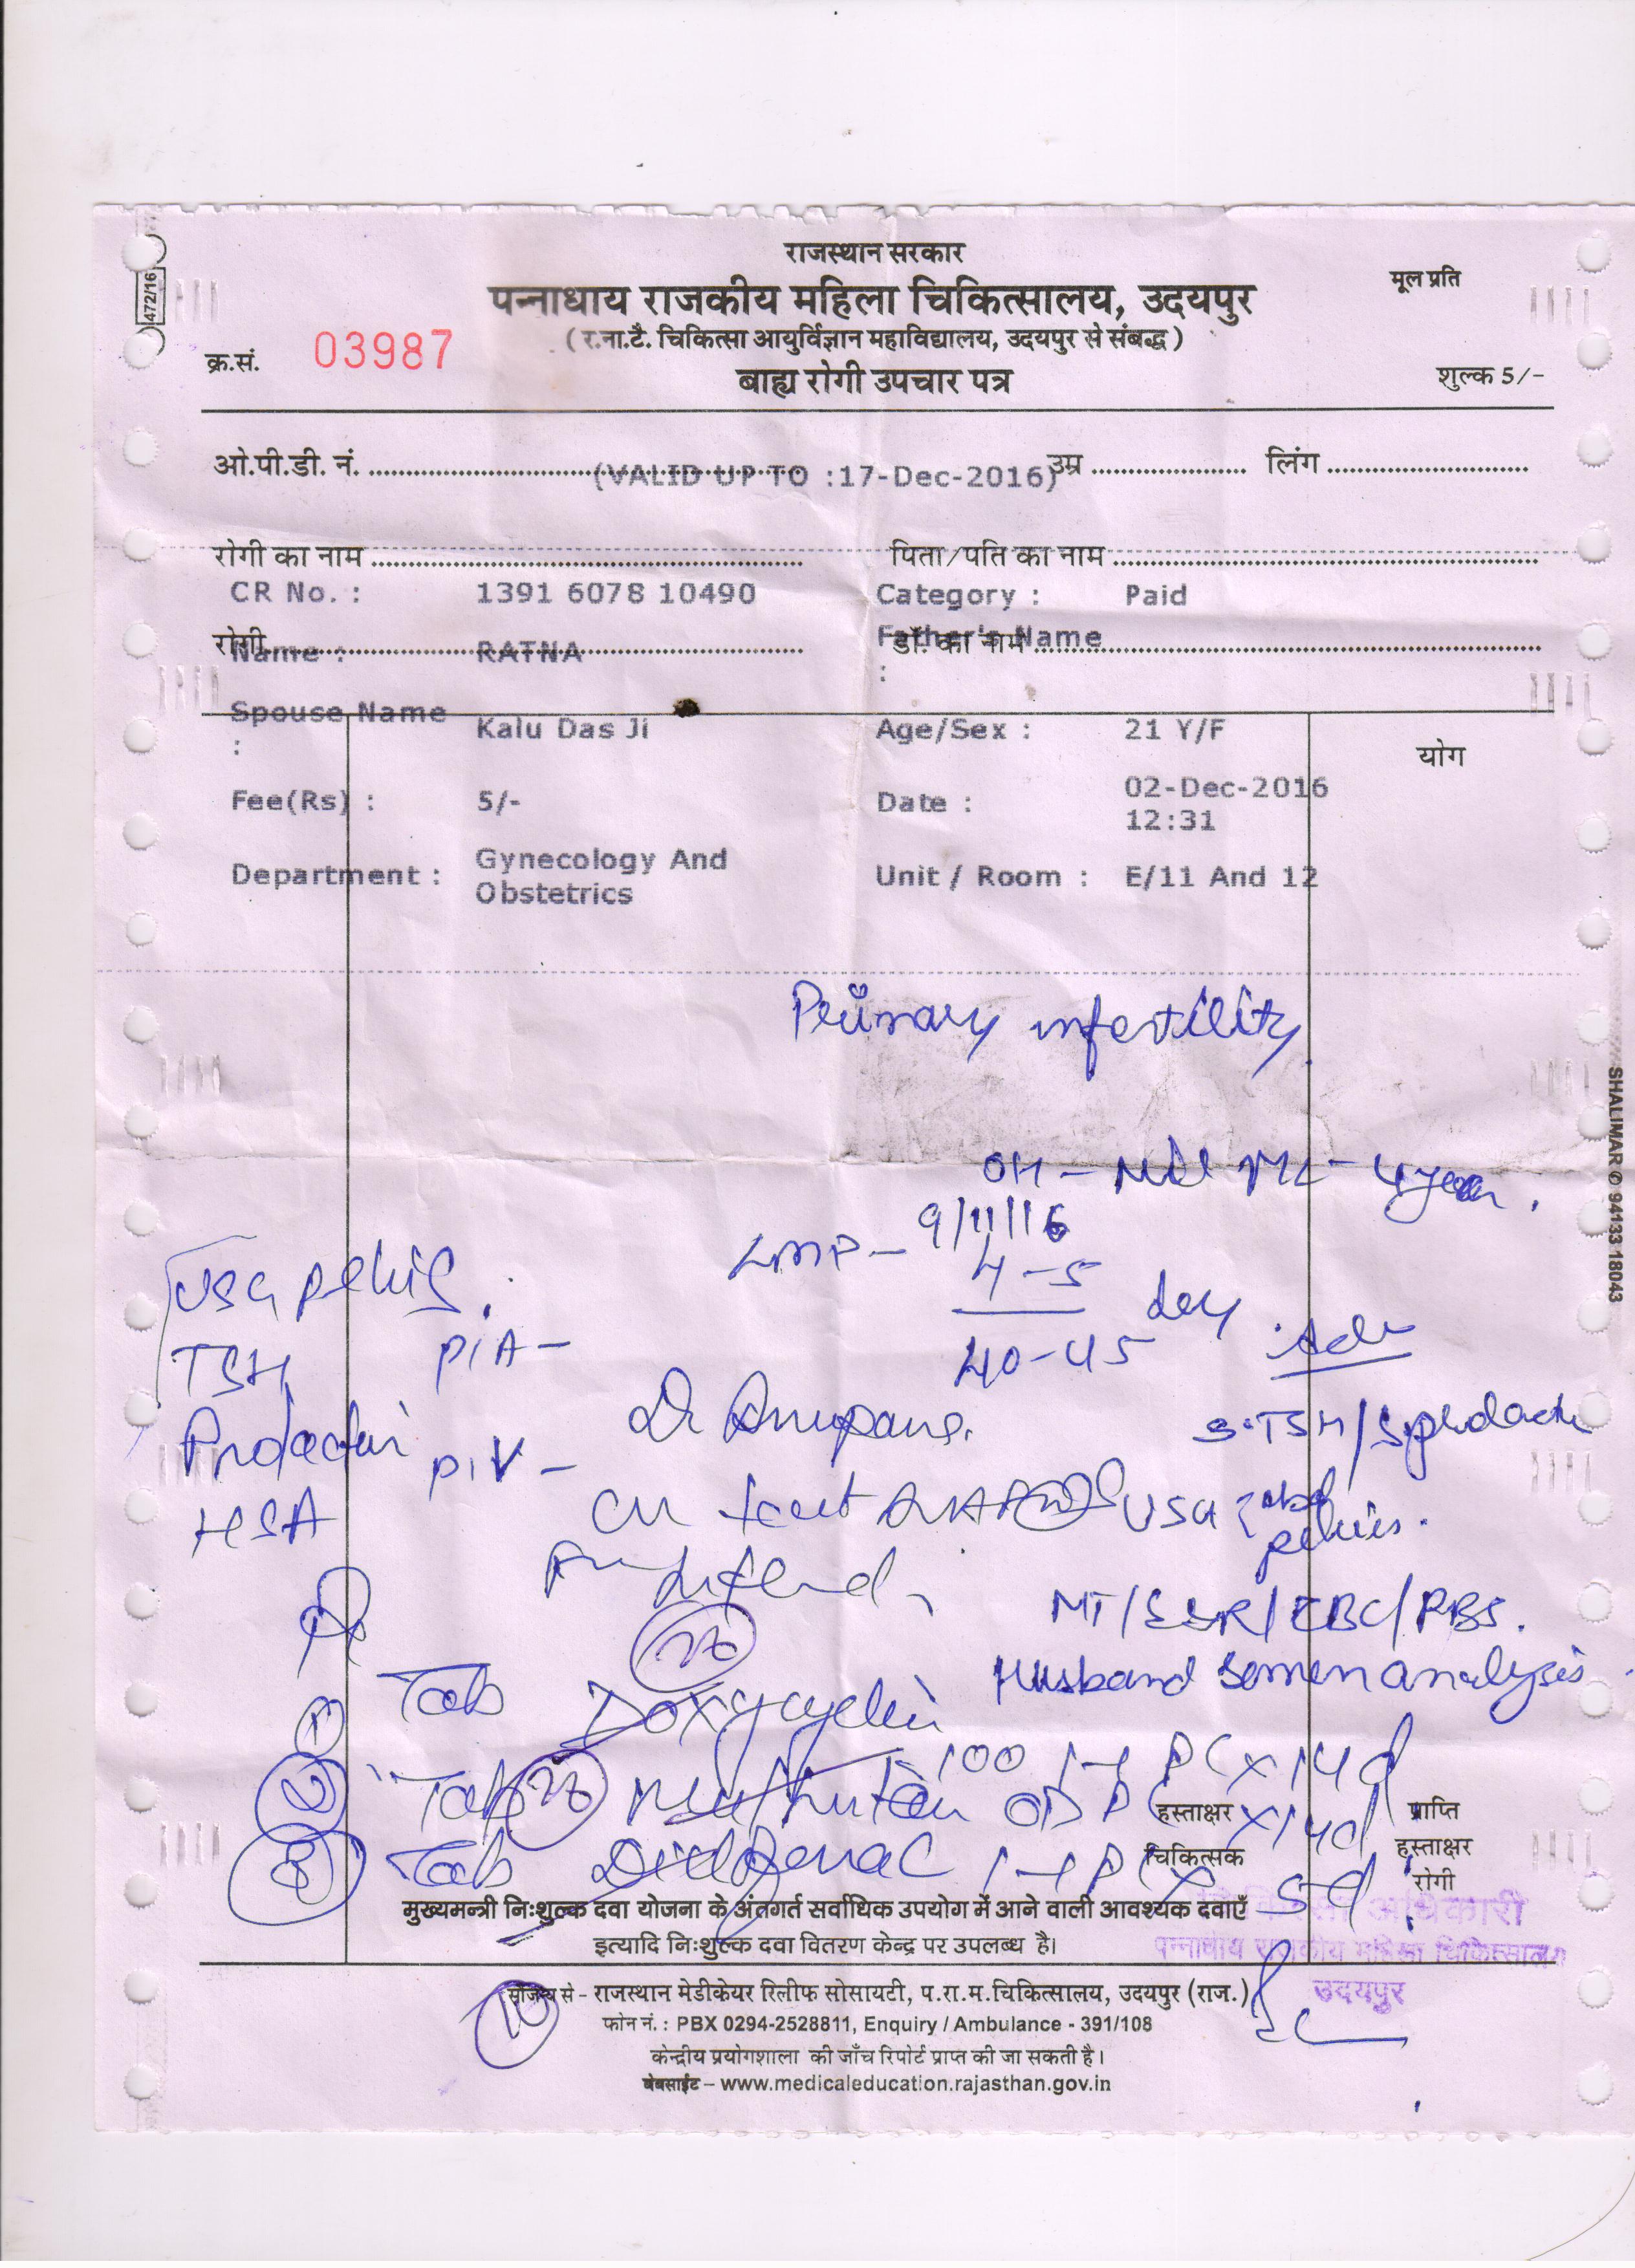 472/16
राजस्थान सरकार
मूल प्रति
पन्नाधाय राजकीय महिला चिकित्सालय, उदयपुर
( र.ना.टै. चिकित्सा आयुर्विज्ञान महाविद्यालय, उदयपुर से संबद्ध )
क्र.सं. 03987
बाह्य रोगी उपचार पत्र
शुल्क 5/-
ओ.पी.डी. नं. (VALID UP TO :17-Dec-2016) उम्र लिंग
रोगी का नाम पिता/पति का नाम
CR No. : 1391 6078 10490 Category : Paid
रोगी डॉ. का नाम
Name : RATNA Father's Name :
Spouse Name : Kalu Das Ji Age/Sex : 21 Y/F
योग
Fee(Rs) : 5/- Date : 02-Dec-2016 12:31
Department : Gynecology And Obstetrics Unit / Room : E/11 And 12
Primary infertility
SHALIMAR © 94133 18043
OH - Nil ML - 4 year.
LMP - 9/11/16
USG pelvis.
4-5
40-45 day
Adv
TSH P/A -
Dr Anupama.
S.TSH/S.prolactin
Prolactin P/V -
USG abd pelvis.
HSA
MT/ESR/CBC/RBS.
Husband semen analysis.
Tab Doxycyclin
100 1-1 PC x 14d
Tab OD PC x 14d
हस्ताक्षर
प्राप्ति
Tab Diclofenac 1-1 PC x 5d
चिकित्सक
हस्ताक्षर
रोगी
मुख्यमन्त्री निःशुल्क दवा योजना के अंतगर्त सर्वाधिक उपयोग में आने वाली आवश्यक दवाएँ
चिकित्सा अधिकारी
इत्यादि निःशुल्क दवा वितरण केन्द्र पर उपलब्ध है।
पन्नाधाय राजकीय महिला चिकित्सालय
उदयपुर
सौजन्य से - राजस्थान मेडीकेयर रिलीफ सोसायटी, प.रा.म.चिकित्सालय, उदयपुर (राज.)
10
फोन नं. : PBX 0294-2528811, Enquiry / Ambulance - 391/108
केन्द्रीय प्रयोगशाला की जाँच रिपोर्ट प्राप्त की जा सकती है।
वेबसाईट – www.medicaleducation.rajasthan.gov.in